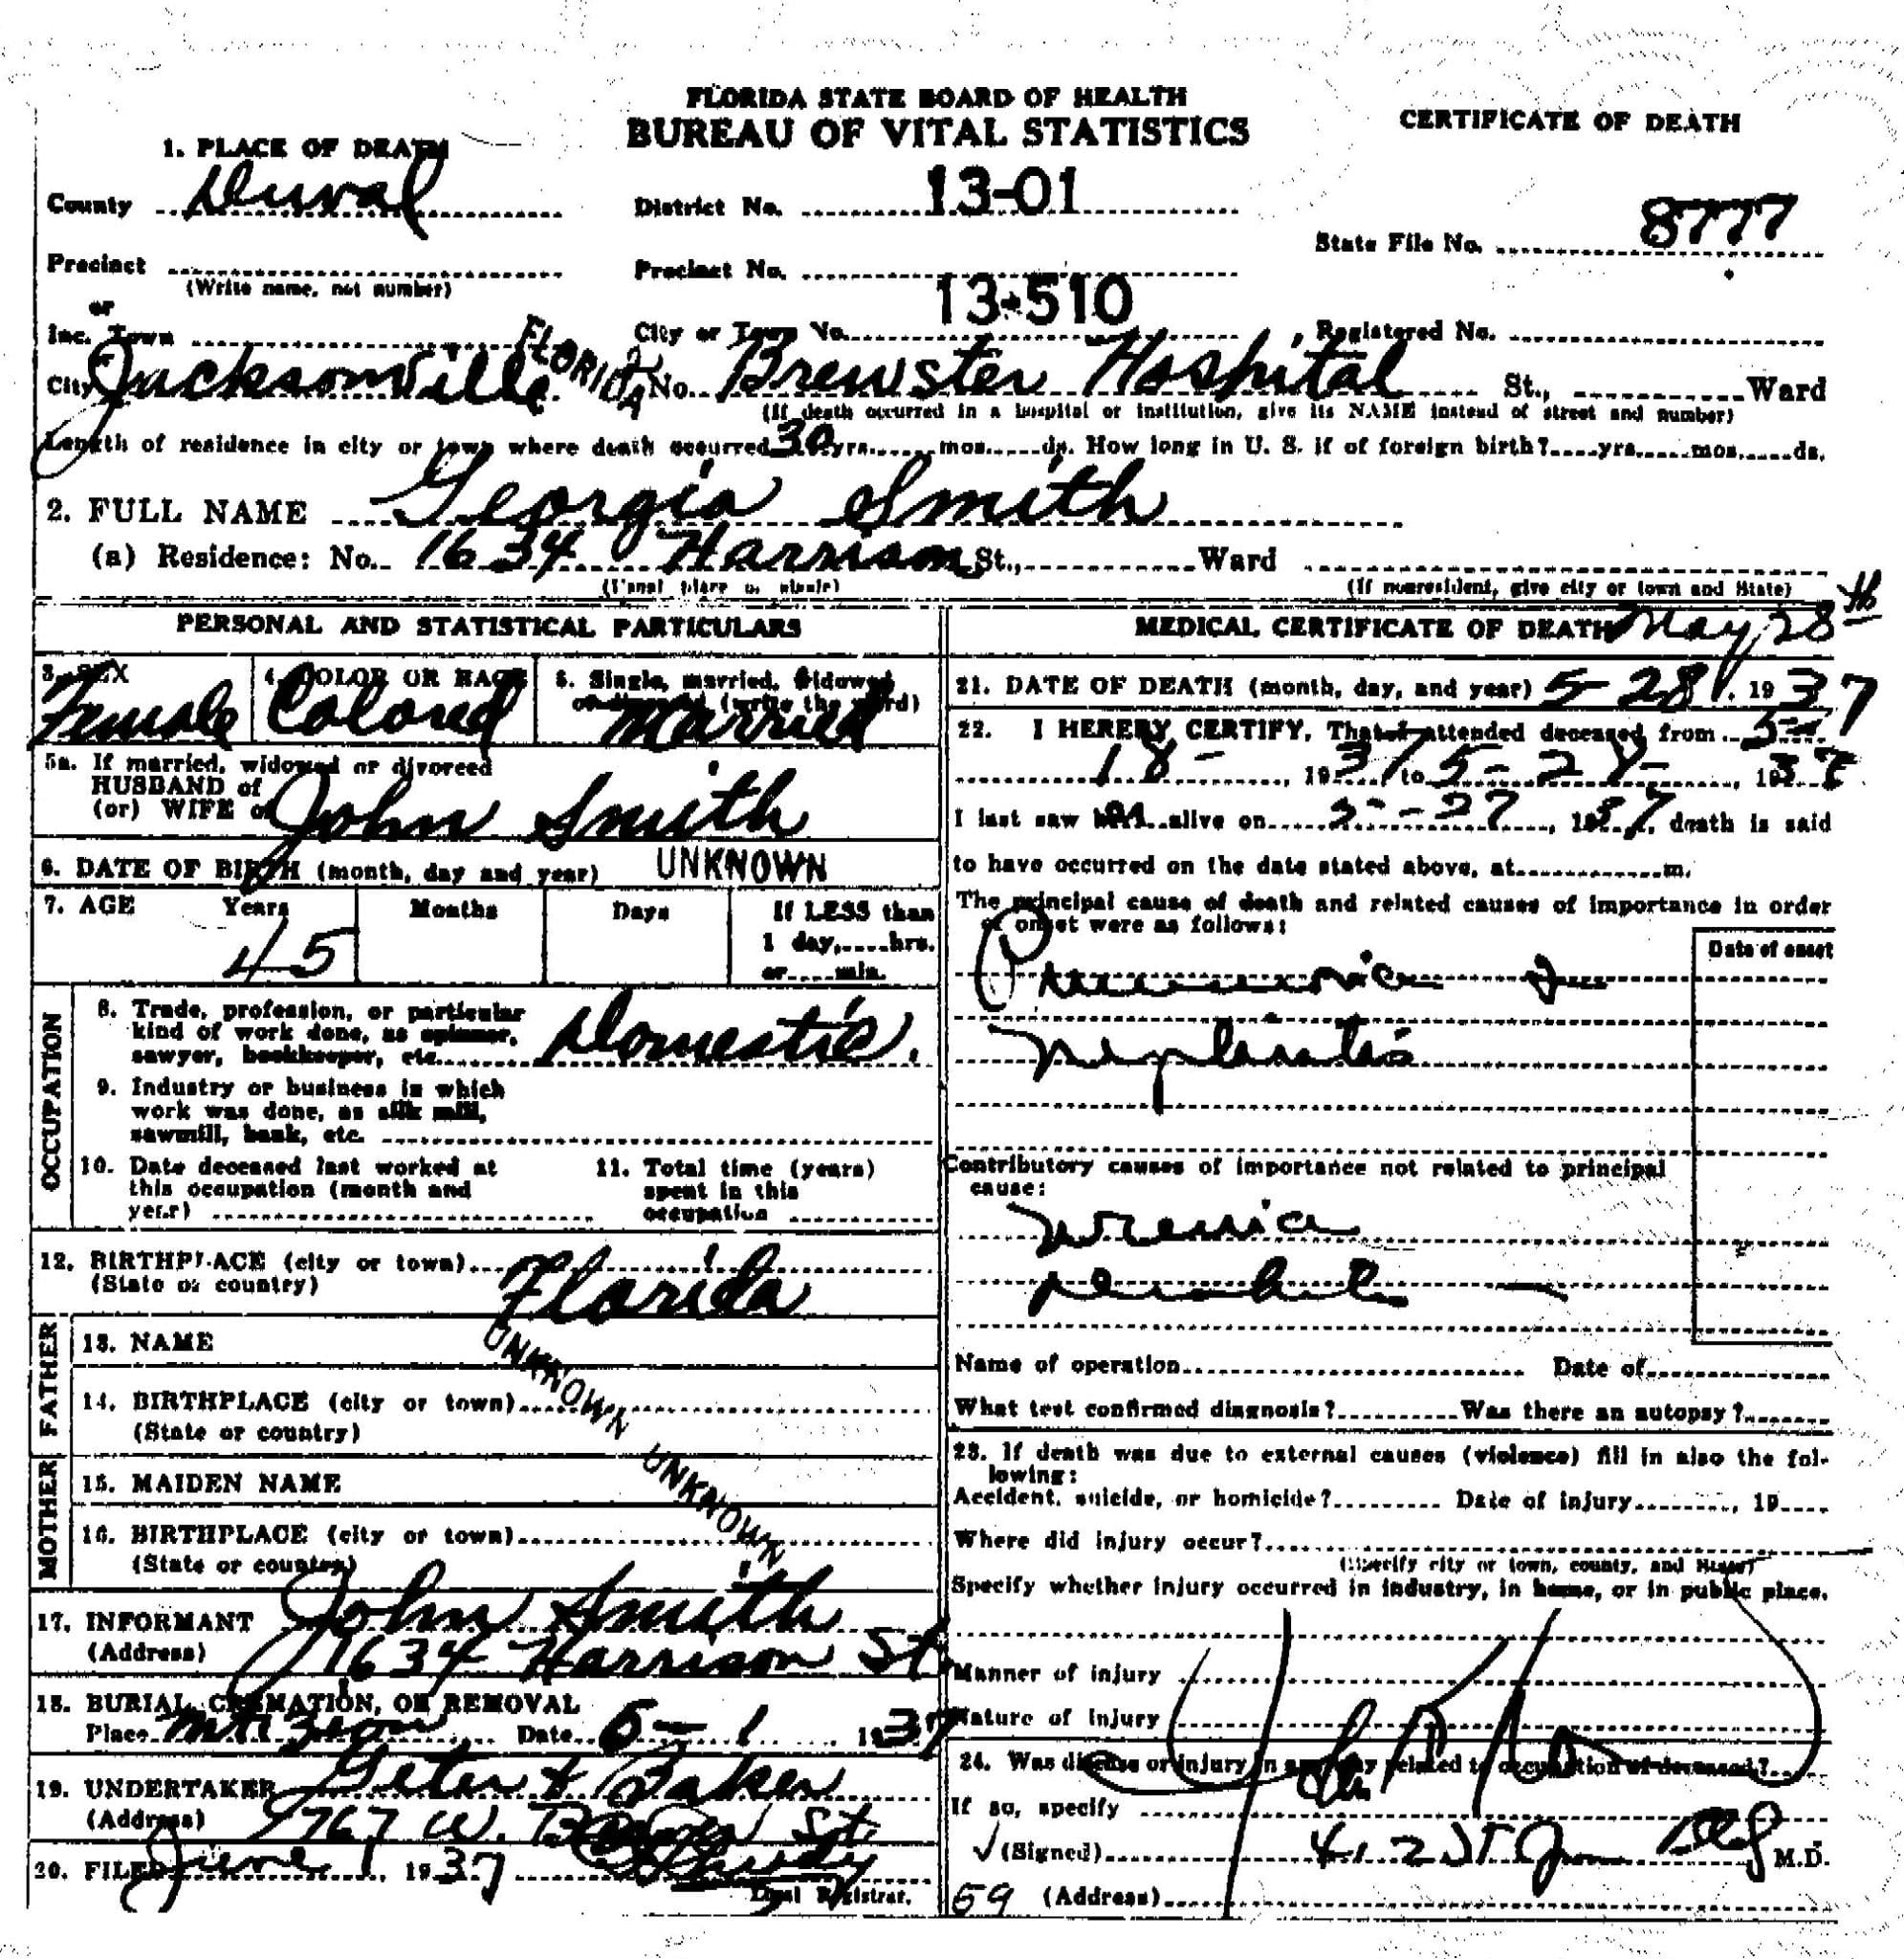 FLORIDA STATE BOARD OF HEALTH
BUREAU OF VITAL STATISTICS
CERTIFICATE OF DEATH
1. PLACE OF DEATH
County Duval
District No. 13-01
State File No. 8777
Precinct
(Write name, not number)
Precinct No.
or
Inc. Town
City or Town No. 13-510
Registered No.
City Jacksonville FLORIDA No. Brewster Hospital St., Ward
(If death occurred in a hospital or institution, give its NAME instead of street and number)
Length of residence in city or town where death occurred 30 yrs. mos. ds. How long in U. S. if of foreign birth? yrs. mos. ds.
2. FULL NAME Georgia Smith
(a) Residence: No. 1634 Harrison St., Ward
(Usual place of abode)
(If nonresident, give city or town and State)
PERSONAL AND STATISTICAL PARTICULARS
3. SEX
Female
4. COLOR OR RACE
Colored
5. Single, married, widowed
or divorced (write the word)
Married
5a. If married, widowed or divorced
HUSBAND of
(or) WIFE of John Smith
6. DATE OF BIRTH (month, day and year) UNKNOWN
7. AGE Years Months Days If LESS than
1 day, hrs.
or min.
45
OCCUPATION
8. Trade, profession, or particular
kind of work done, as spinner,
sawyer, bookkeeper, etc. Domestic.
9. Industry or business in which
work was done, as silk mill,
sawmill, bank, etc.
10. Date deceased last worked at
this occupation (month and
year)
11. Total time (years)
spent in this
occupation
12. BIRTHPLACE (city or town)
(State or country) Florida
FATHER
13. NAME
UNKNOWN
14. BIRTHPLACE (city or town)
(State or country)
MOTHER
15. MAIDEN NAME
UNKNOWN
16. BIRTHPLACE (city or town)
(State or country)
17. INFORMANT John Smith
(Address) 1634 Harrison St.
18. BURIAL, CREMATION, OR REMOVAL
Place Mt. Zion Date 6-1 1937
19. UNDERTAKER Geter & Baker
(Address) 767 W. St.
20. FILED June 1, 1937
Local Registrar.
MEDICAL CERTIFICATE OF DEATH May 28th
21. DATE OF DEATH (month, day, and year) 5-28, 1937
22. I HEREBY CERTIFY, That I attended deceased from 5-
18- , 1937 to 5-28- , 1937
I last saw h alive on 5-27, 1937, death is said
to have occurred on the date stated above, at m.
The principal cause of death and related causes of importance in order
of onset were as follows:
Date of onset
Nephritis
Contributory causes of importance not related to principal
cause:
Uremia
Name of operation Date of
What test confirmed diagnosis? Was there an autopsy?
23. If death was due to external causes (violence) fill in also the fol-
lowing:
Accident, suicide, or homicide? Date of injury , 19
Where did injury occur?
(Specify city or town, county, and State)
Specify whether injury occurred in industry, in home, or in public place.
Manner of injury
Nature of injury
24. Was disease or injury in any way related to occupation of deceased?
If so, specify
(Signed) M.D.
59 (Address)